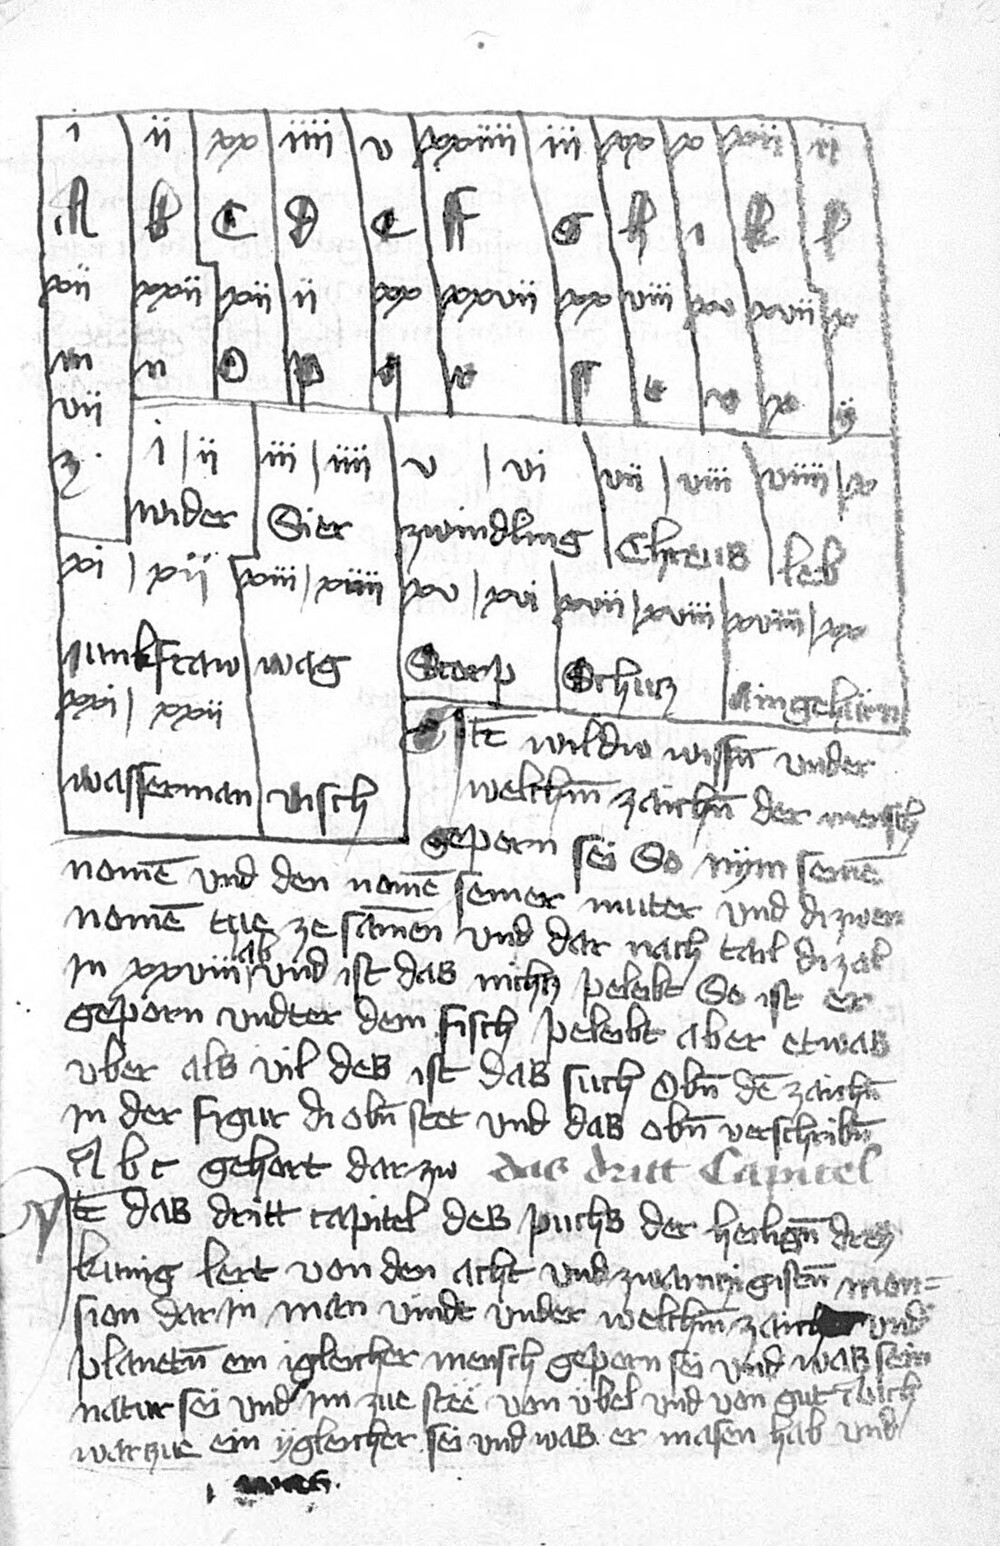 i ii xx iiii v xxiiii iii xx x xii ii
A b C D E F G h i k l
xii xxii xii ii xx xxvii xx viii xv xvii x
m n O p q r s t v x y
vii
z
i ii iii iiii v vi vii viii viiii x
wider Stier zwindling Chreus leb
xi xii xiii xiiii xv xvi xvii xviii xviiii xx
junkfraw wag Scorp Schucz aingehürn
xxi xxii
wasserman visch
Itē wildw wissn̄ under
welchm̄ zaichn̄ der mensch
geporn sei So nym seinē
nomē und den nomē seiner muter und di zwen
nomē tue ze samen und dar nach tail di zal
in xxviii ab und ist das nichtz peleibt So ist er
geporn undter dem fisch peleibt aber etwas
uber als vil des ist das such Obn̄ dē zaichn̄
in der figur di obn̄ stet und das obn̄ verschribn̄
A b c gehort dar zw das dritt Capitel
Itē das dritt capitel des puchs der heilign̄ drey
kunig lert von den acht und zwainczigistn̄ man=
sion dar in man vindt under welchm̄ zaich und
planetn̄ ein igleicher mensch geporn sei und was sein
natur sei und im zue stee von übel und von gut
warzue ein ygleicher sei und was er masen hab und